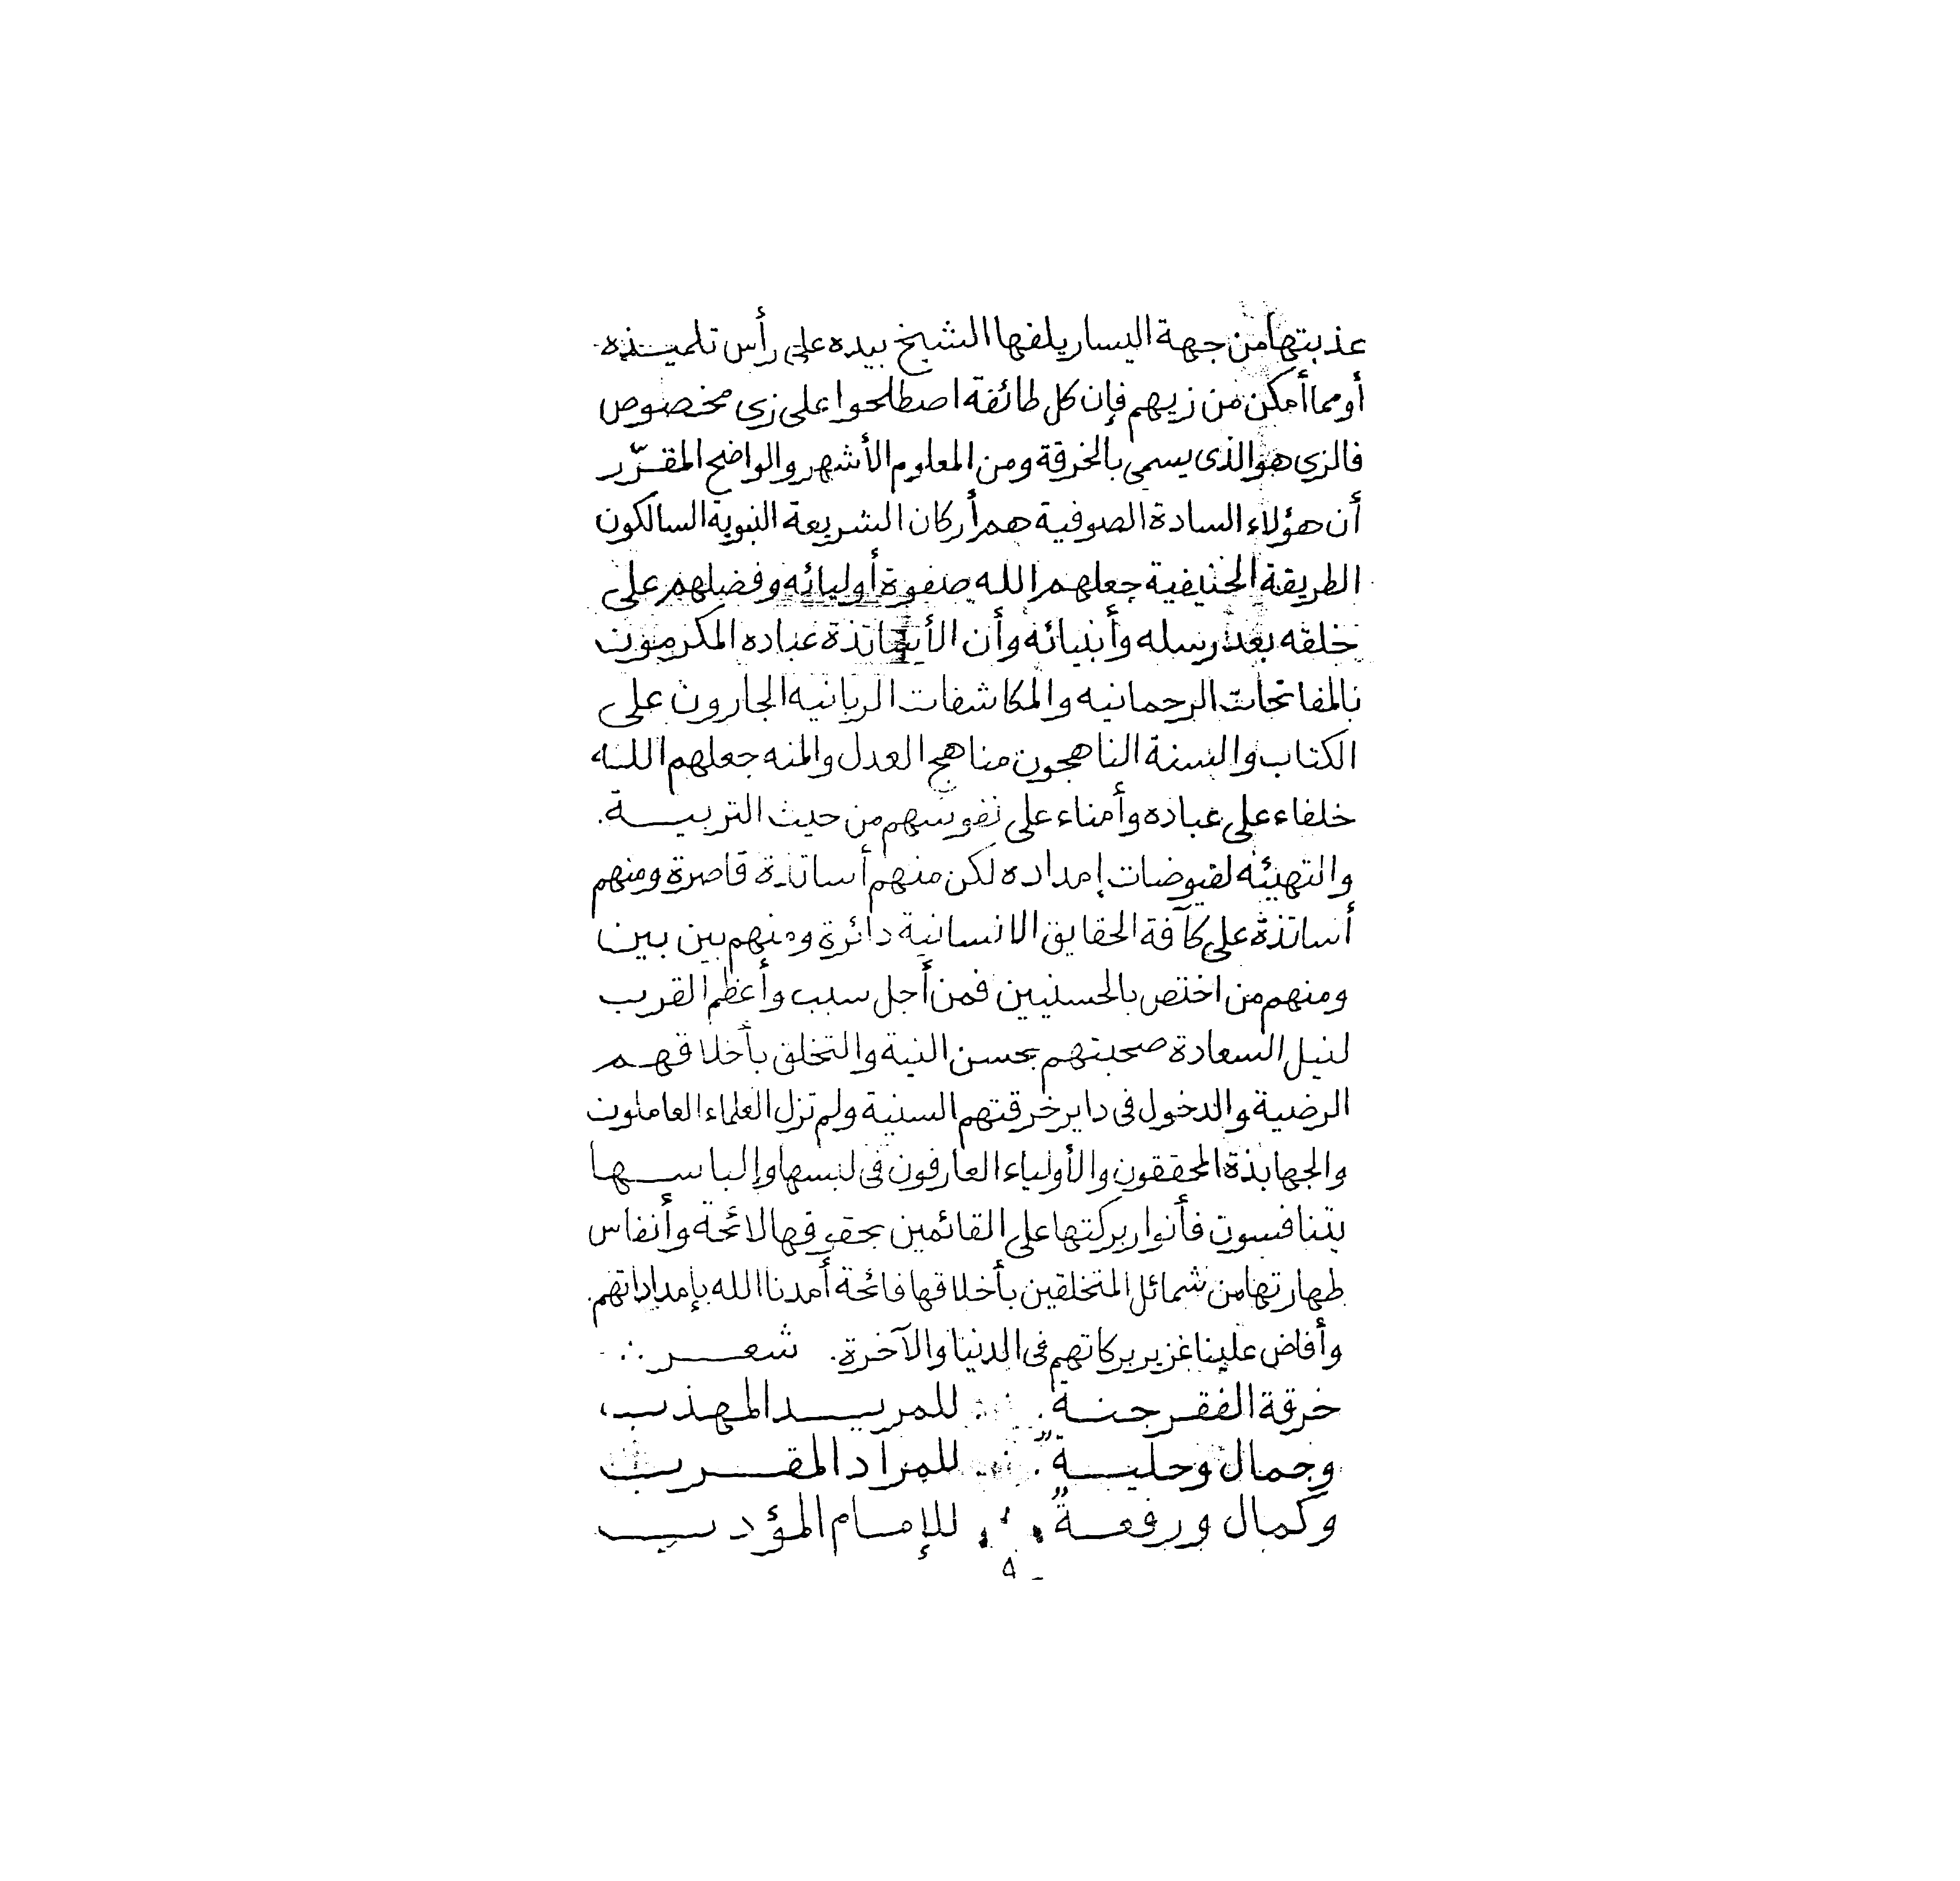 عذبتها من جهة اليسار يلفها الشيخ بيده على رأس تلميذه
أو مما أمكن من زيهم فإن كل طائفة اصطلحوا على زى مخصوص
فالزى هو الذى يسمى بالخرقة ومن المعلوم الأشهر والواضح المقرّر
أن هؤلاء السادة الصوفية هم أركان الشريعة النبوية السالكون
الطريقة الحنيفية جعلهم الله صفوة أوليائه وفضلهم على
خلقه بعد رسله وأنبيائه وأن الأساتذة عباده المكرمون
بالمفاتحات الرحمانيه والمكاشفات الربانيه الجارون على
الكتاب والسنة الناهجون مناهج العدل والمنه جعلهم الله
خلفاء على عباده وأمناء على نفوسهم من حيث التربيـــة.
والتهيئه لفيوضات إمداده لكن منهم أساتذة قاصرة ومنهم
أساتذة على كآفة الحقايق الانسانية دائرة ومنهم بين بين
ومنهم من اختص بالحسنيين فمن أجل سبب وأعظم القرب
لنيل السعادة صحبتهم بحسن النية والتخلق بأخلاقهـم
الرضية والدخول فى داير خرقتهم السنية ولم تزل العلماء العاملون
والجهابذة المحققون والأولياء العارفون فى لبسها وإلباسـها
يتنافسون فأنوار بركتها على القائمين بحقوقها لائحة وأنفاس
طهارتها من شمائل المتخلقين بأخلاقها فائحة أمدنا الله بإمداداتهم.
وأفاض علينا غزير بركاتهم فى الدنيا والآخرة. شعــر ∴
خرقة الفقر جنـة ∴ للمريـد المهذب
وجمال وحليــةٌ ∴ للمراد المقــرب
وكمال ورفعــةٌ ∴ للإمـام المؤدب
٩